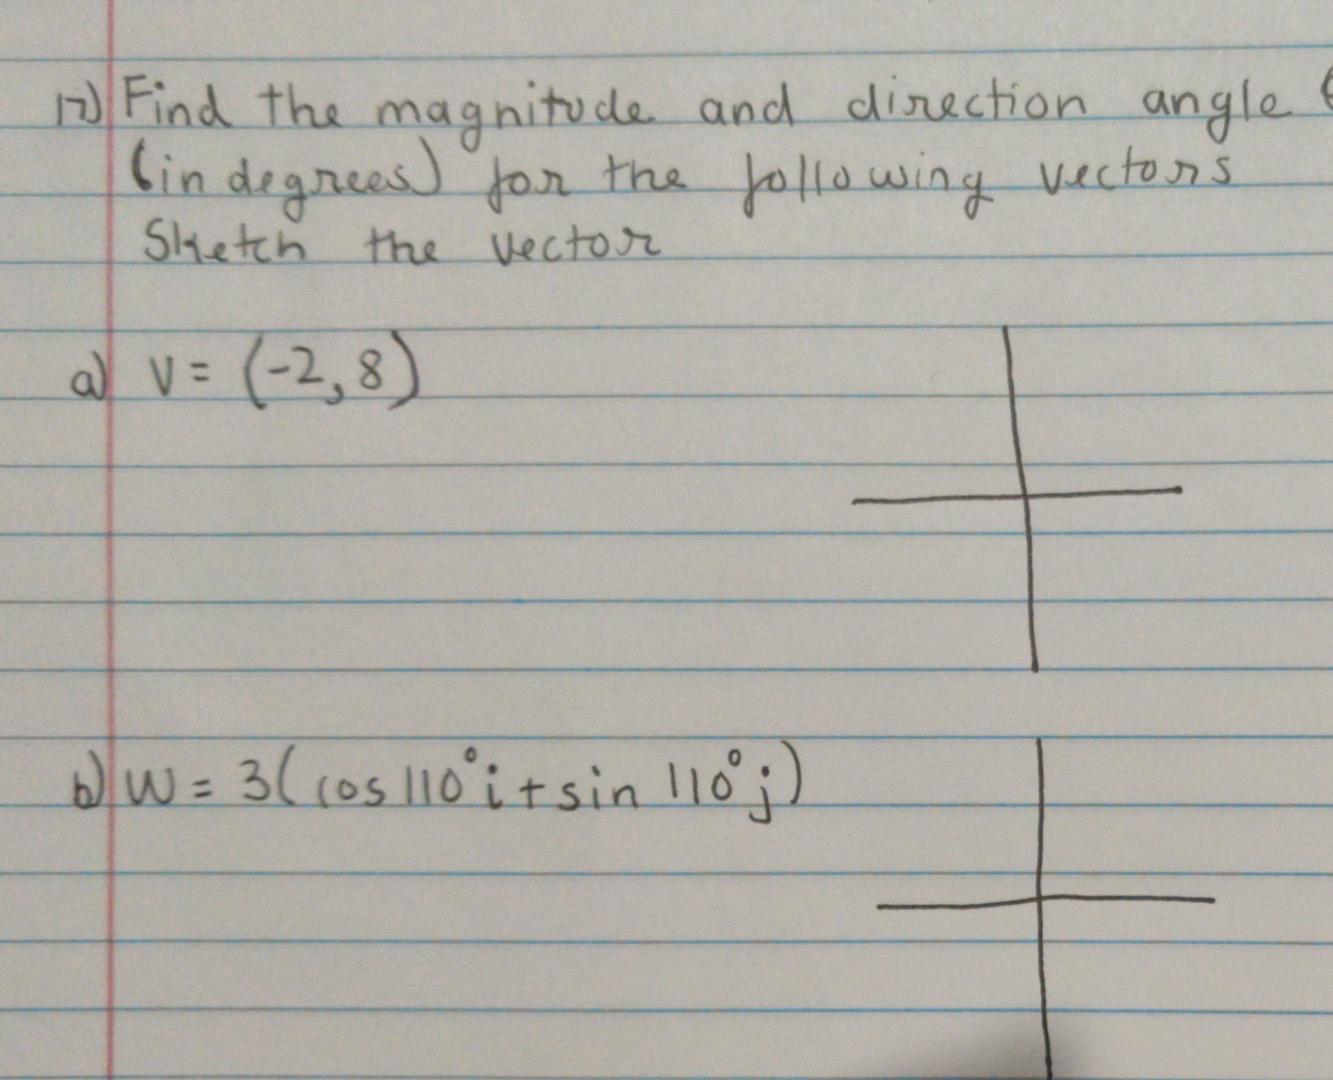 17) Find the magnitude and direction angle
(in degrees) for the following vectors
Sketch the vector
a) v = (-2, 8)
b) w = 3(cos 110° i + sin 110° j)